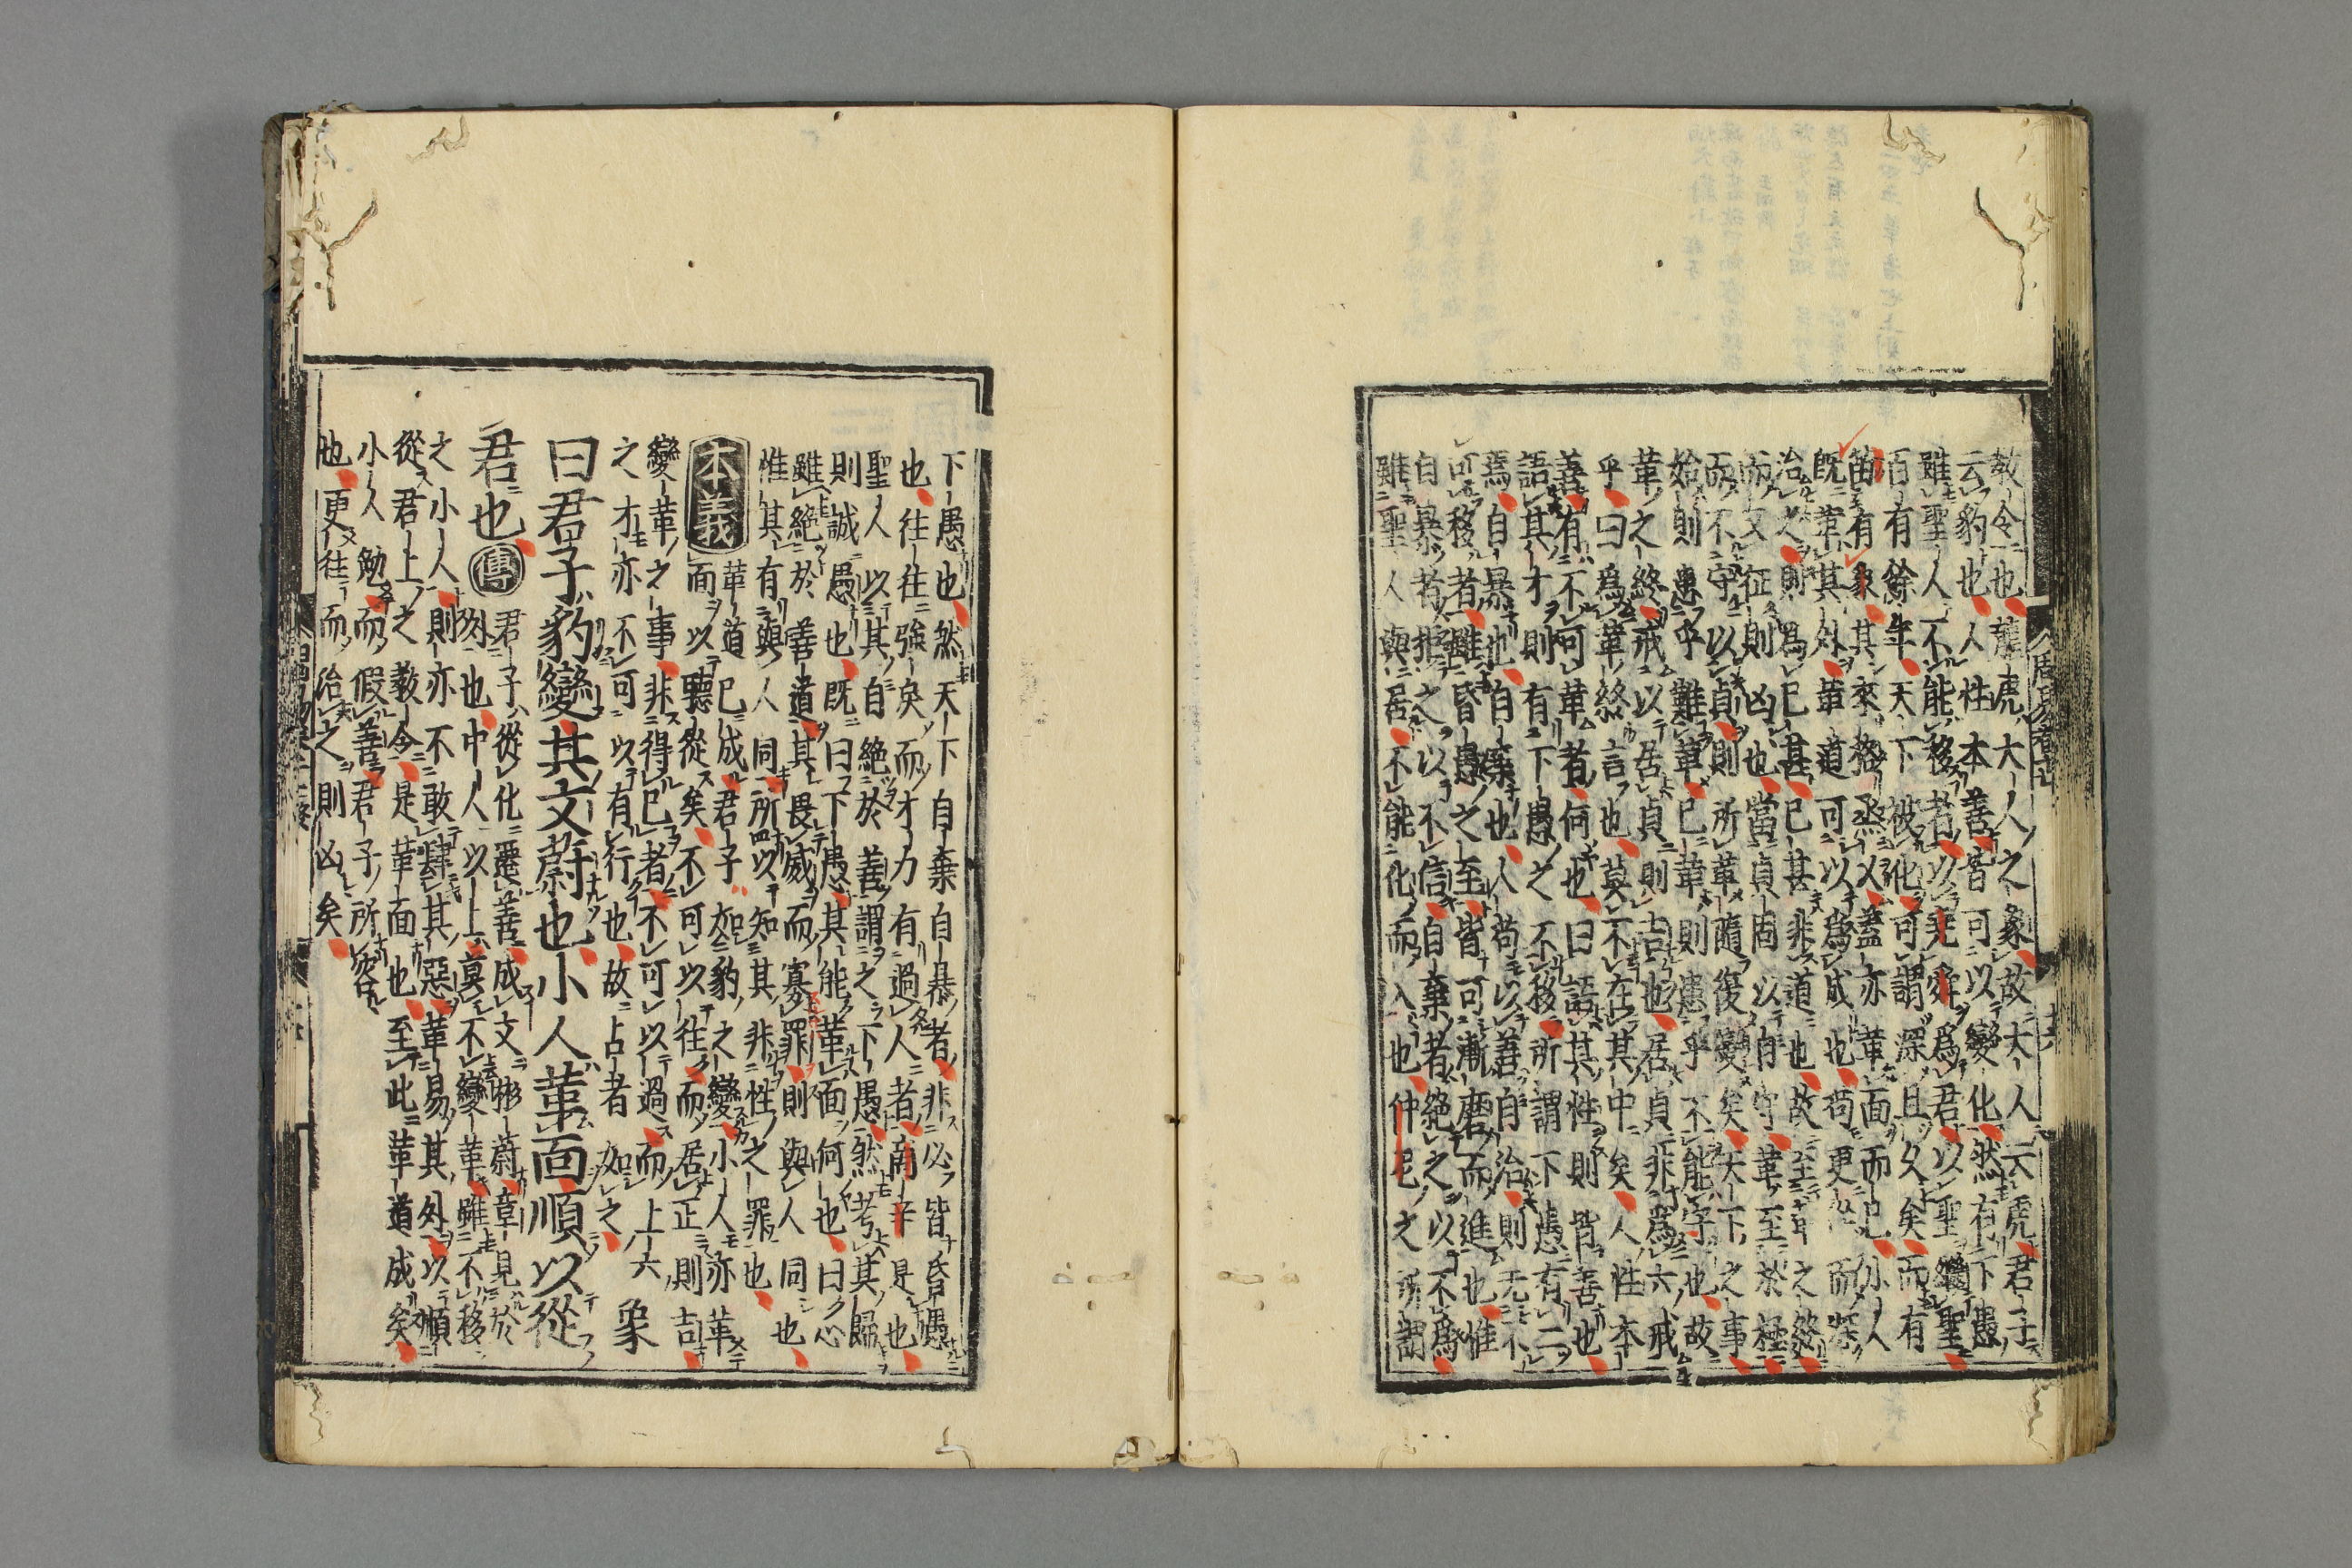 教令也龍虎大人之象故大人云虎君子
云豹也人性本善皆可以變化然有下愚
雖聖人不能移者以堯舜爲君以聖繼聖
百有餘年天下被化可謂深且久矣而有
苗有象其來格烝乂蓋亦革面而已小人
既革其外革道可以爲成也苟更從而深
治之則爲已甚已甚非道也故至革之終
而又征則凶也當貞固以自守革至於極
而不守以貞則所革隨復變矣天下之事
始則患乎難革已革則患乎不能守也故
革之終戒以居貞則吉也居貞非爲六戒
乎曰爲革終言也莫不在其中矣人性本
善有不可革者何也曰語其性則皆善也
語其才則有下愚之不移所謂下愚有二
焉自暴也自棄也人苟以善自治則无不
可移者雖昏愚之至皆可漸磨而進也惟
自暴者拒之以不信自棄者絶之以不爲
雖聖人與居不能化而入也仲尼之所謂
下愚也然天下自棄自暴者非必皆昏愚
也往往強戾而才力有過人者商辛是也
聖人以其自絶於善謂之下愚然考其歸
則誠愚也既曰下愚其能革面何也曰心
雖絶於善道其畏威而寡罪則與人同也
惟其有與人同所以知其非性之罪也
本義 革道已成君子如豹之變小人亦革
面以聽從矣不可以往而居正則吉
變革之事非得已者不可以過而上六
之才亦不可以有行也故占者如之 象
曰君子豹變其文蔚也小人革面順以從
君也 傳 君子從化遷善成文彬蔚章見於
外也中人以上莫不變革雖不移
之小人則亦不敢肆其惡革易其外以順
從君上之教令是革面也至此革道成矣
小人勉而假善君子所容
也更往而治之則凶矣